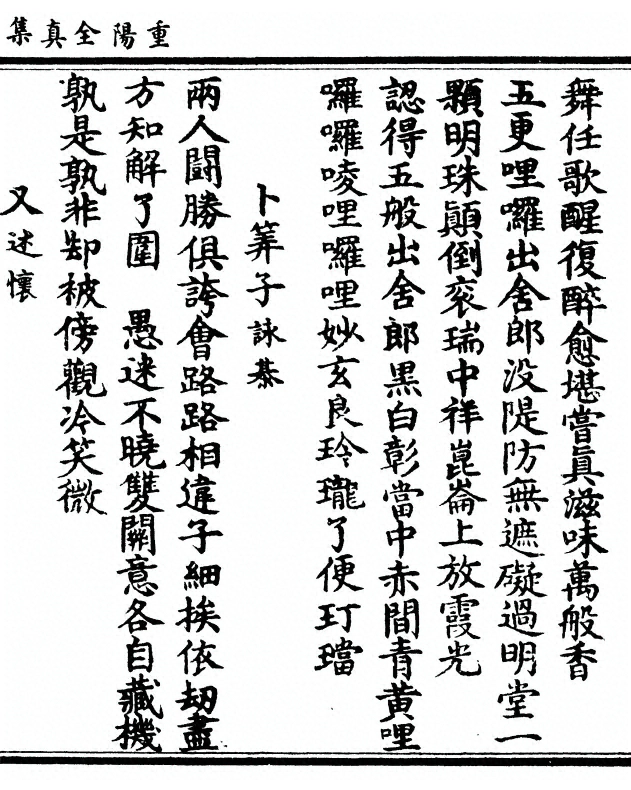 重陽全真集
舞任歌醒復醉愈堪嘗真滋味萬般香
五更哩囉出舍郎没隄防無遮礙過明堂一
顆明珠顛倒衮瑞中祥崑崙上放霞光
認得五般出舍郎黑白彰當中赤間青黃哩
囉囉唛哩囉哩妙玄良玲瓏了便玎璫
卜筭子詠棊
兩人鬭勝俱誇會路路相違子細挨依刼盡
方知解了圍　愚迷不曉雙關意各自藏機
孰是孰非却被傍觀冷笑微
又述懷